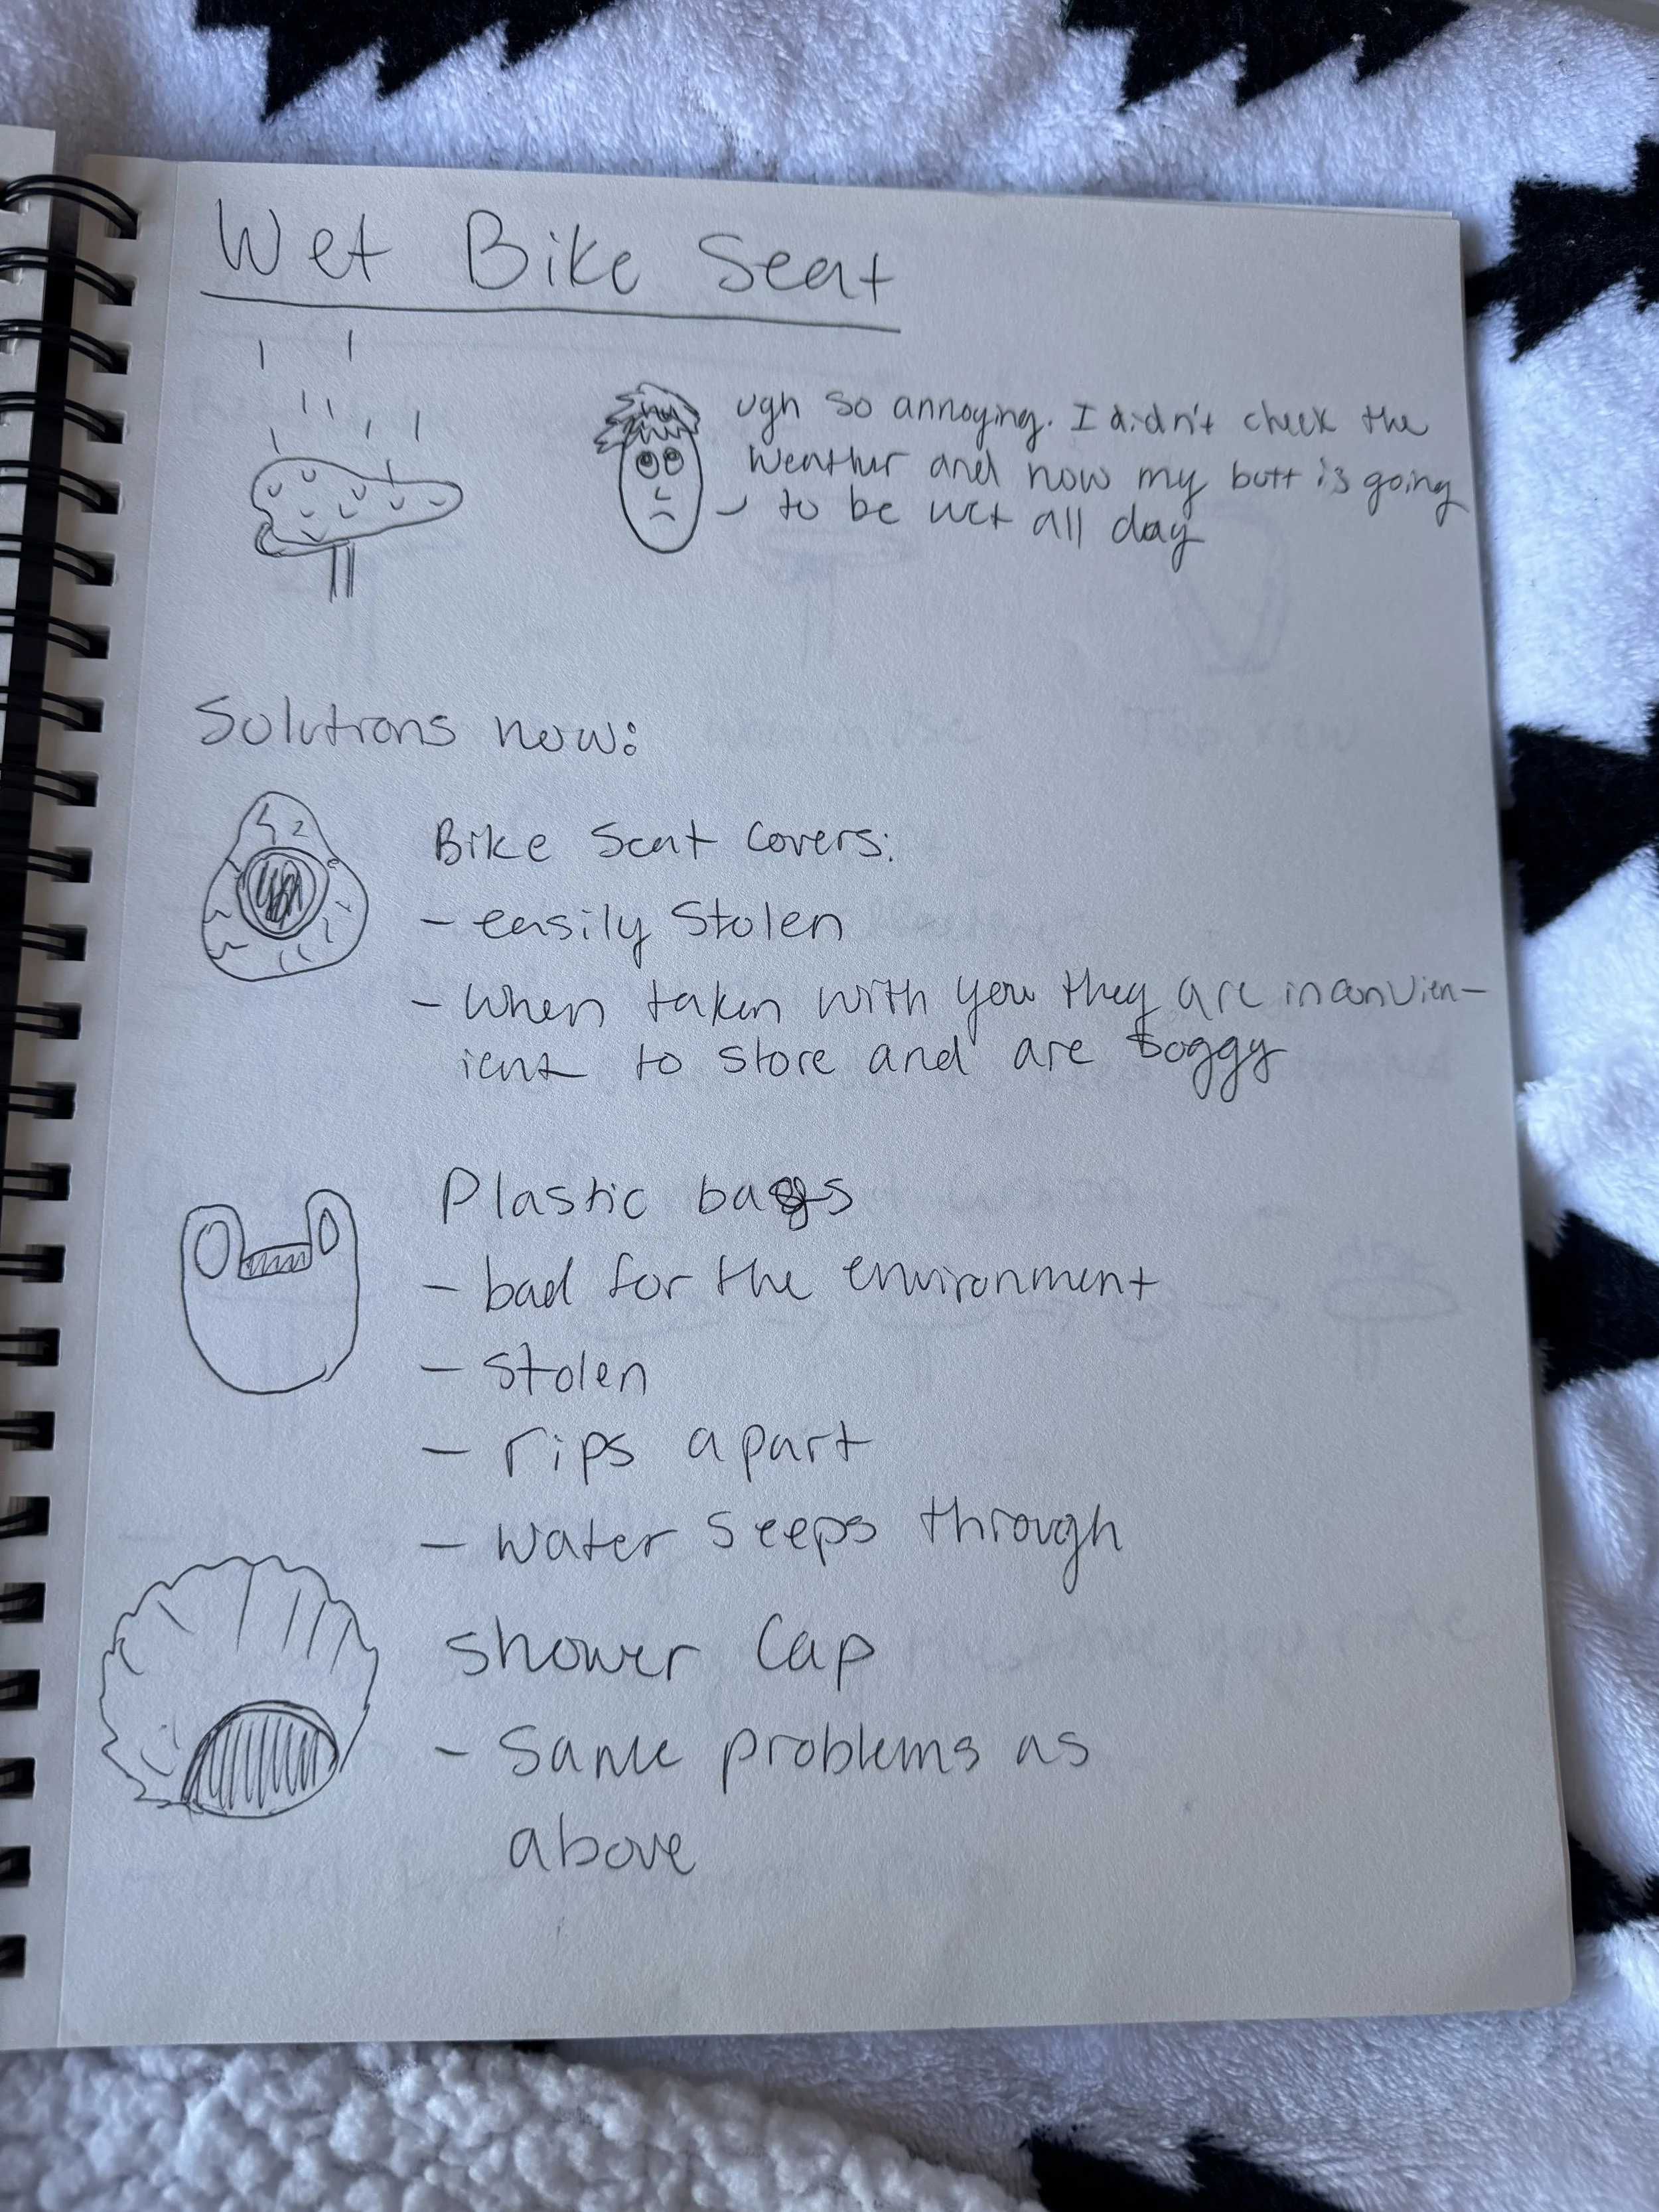 Wet Bike Seat
ugh so annoying. I didn't check the
weather and now my butt is going
to be wet all day
Solutions now:
Bike Seat Covers:
- easily Stolen
- when taken with you they are inconvien-
ient to store and are soggy
Plastic bags
- bad for the environment
- stolen
- rips apart
- water seeps through
shower Cap
- Same problems as
above